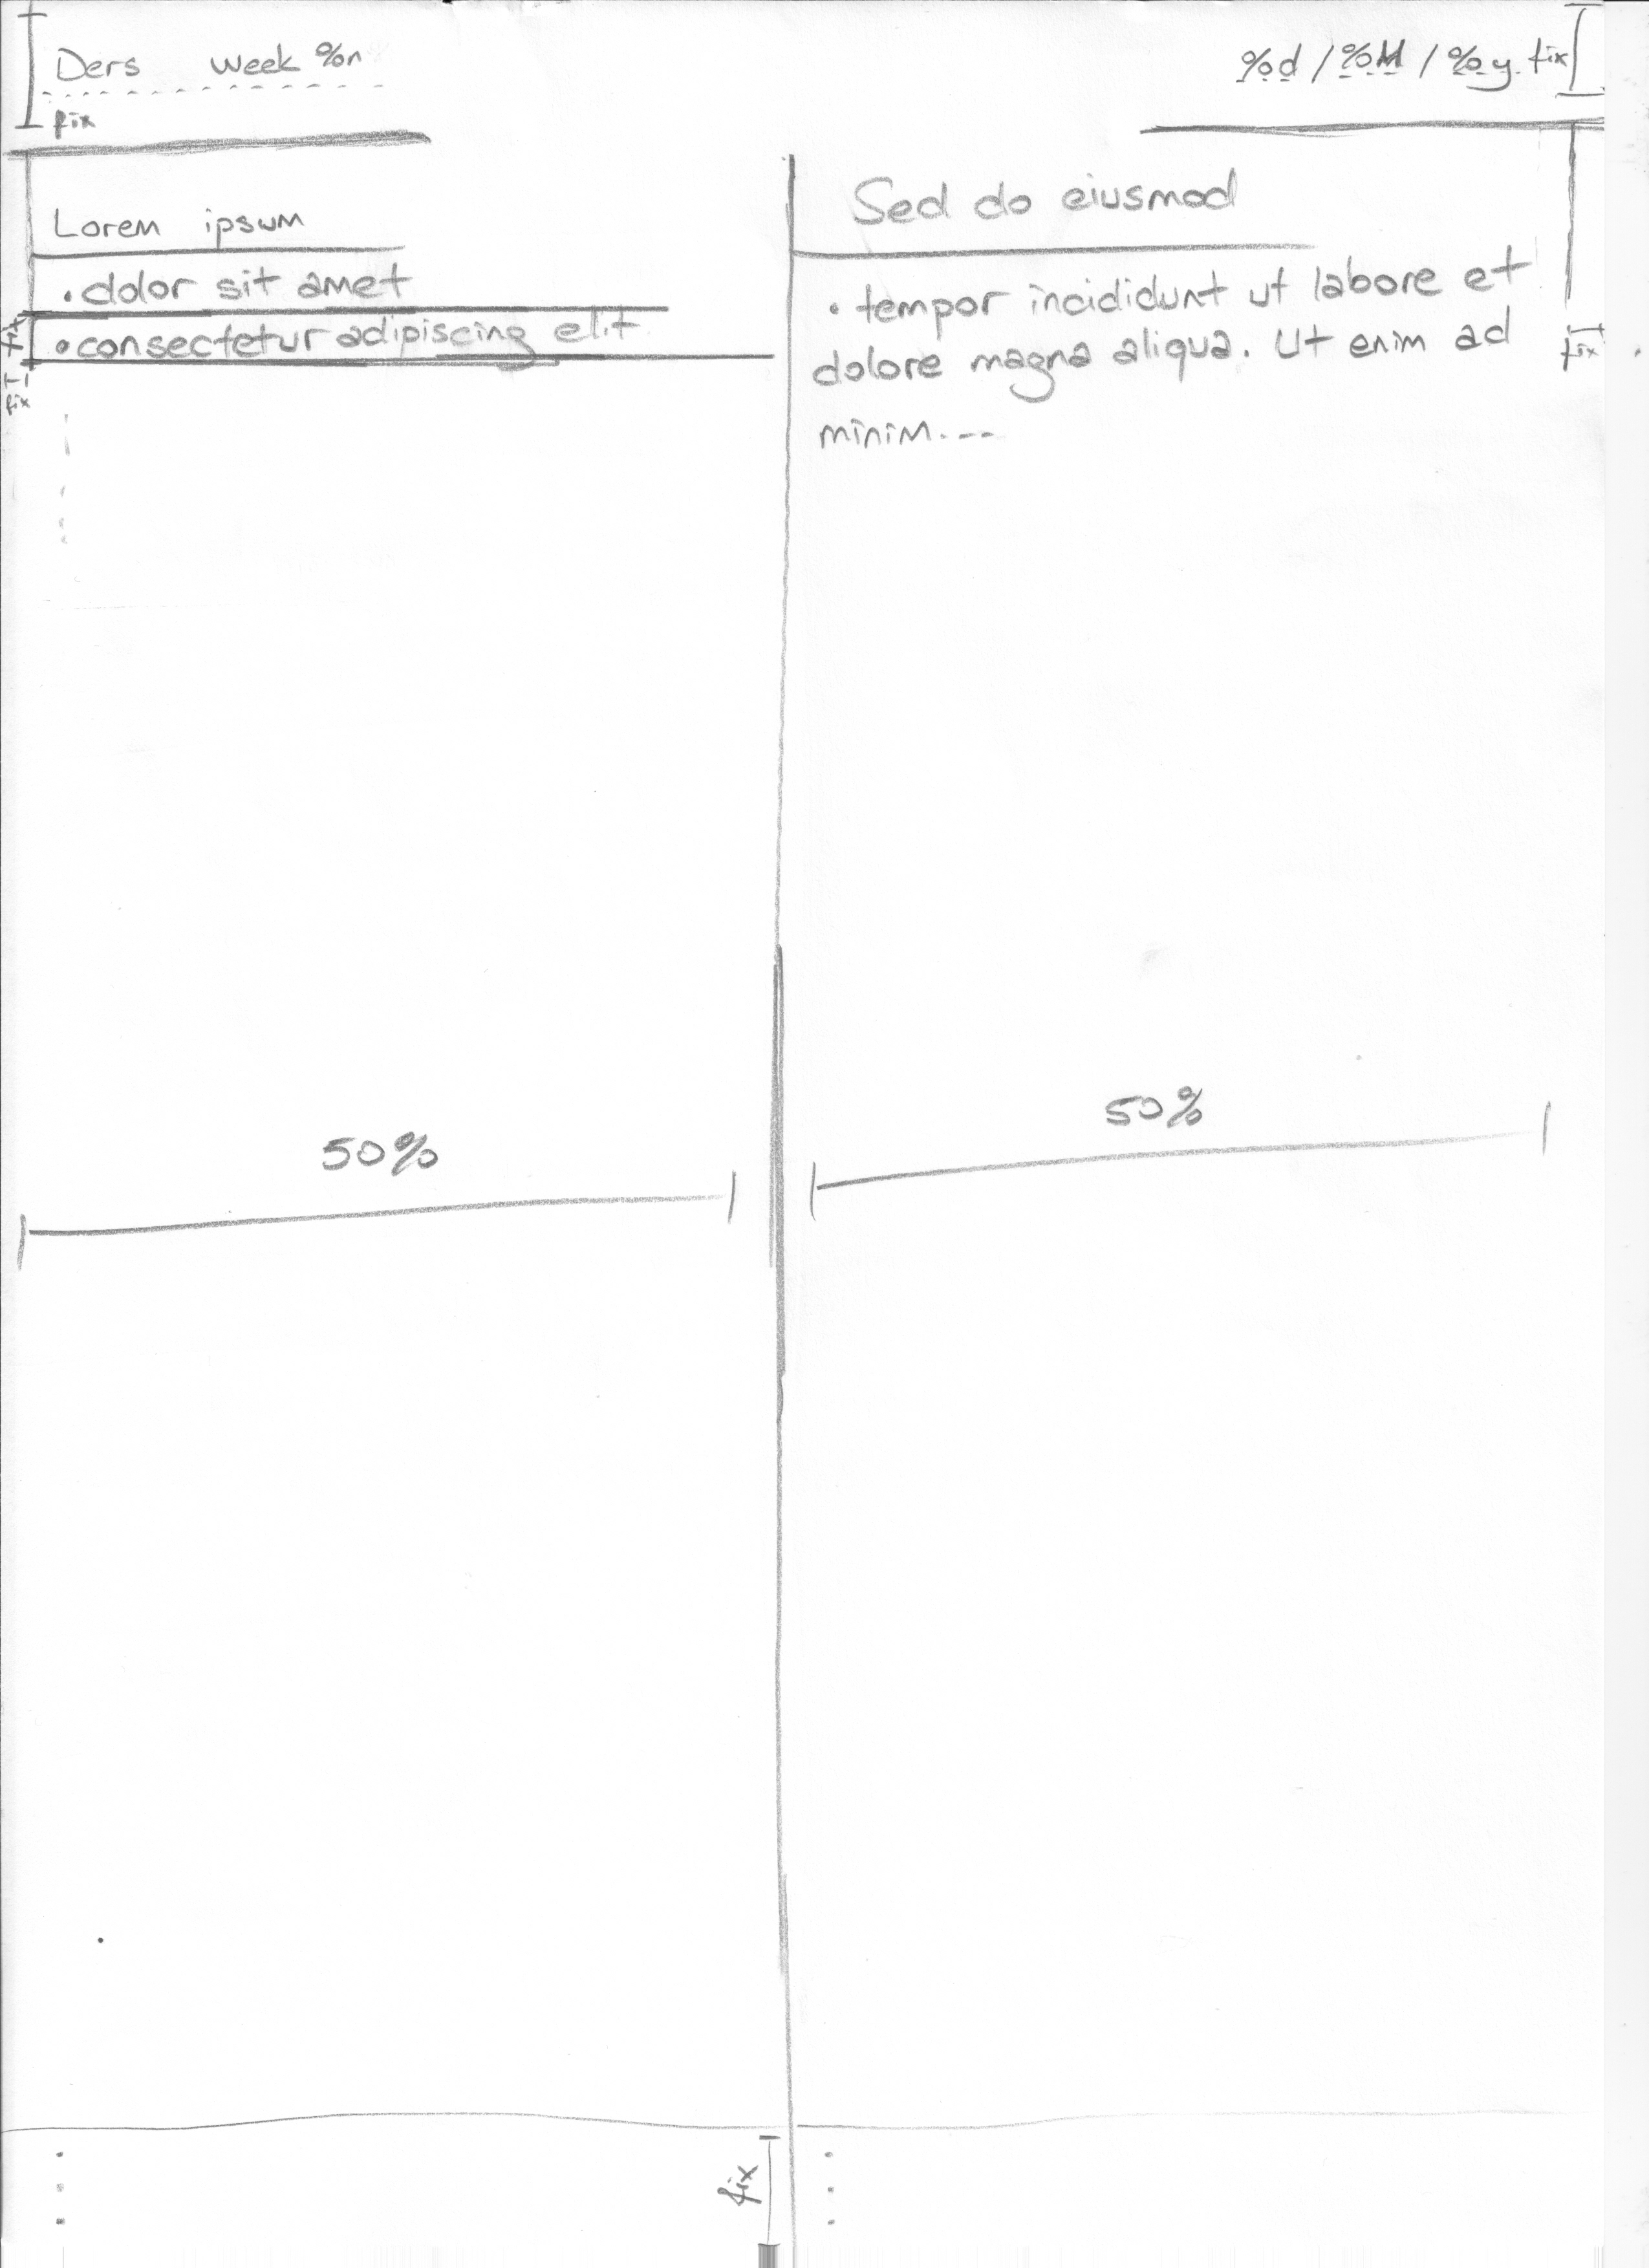 Ders week %n
%d / %M / %y fix
fix
Lorem ipsum
• dolor sit amet
• consectetur adipiscing elit
fix
fix
Sed do eiusmod
• tempor incididunt ut labore et
dolore magna aliqua. Ut enim ad
minim...
fix
50%
50%
fix